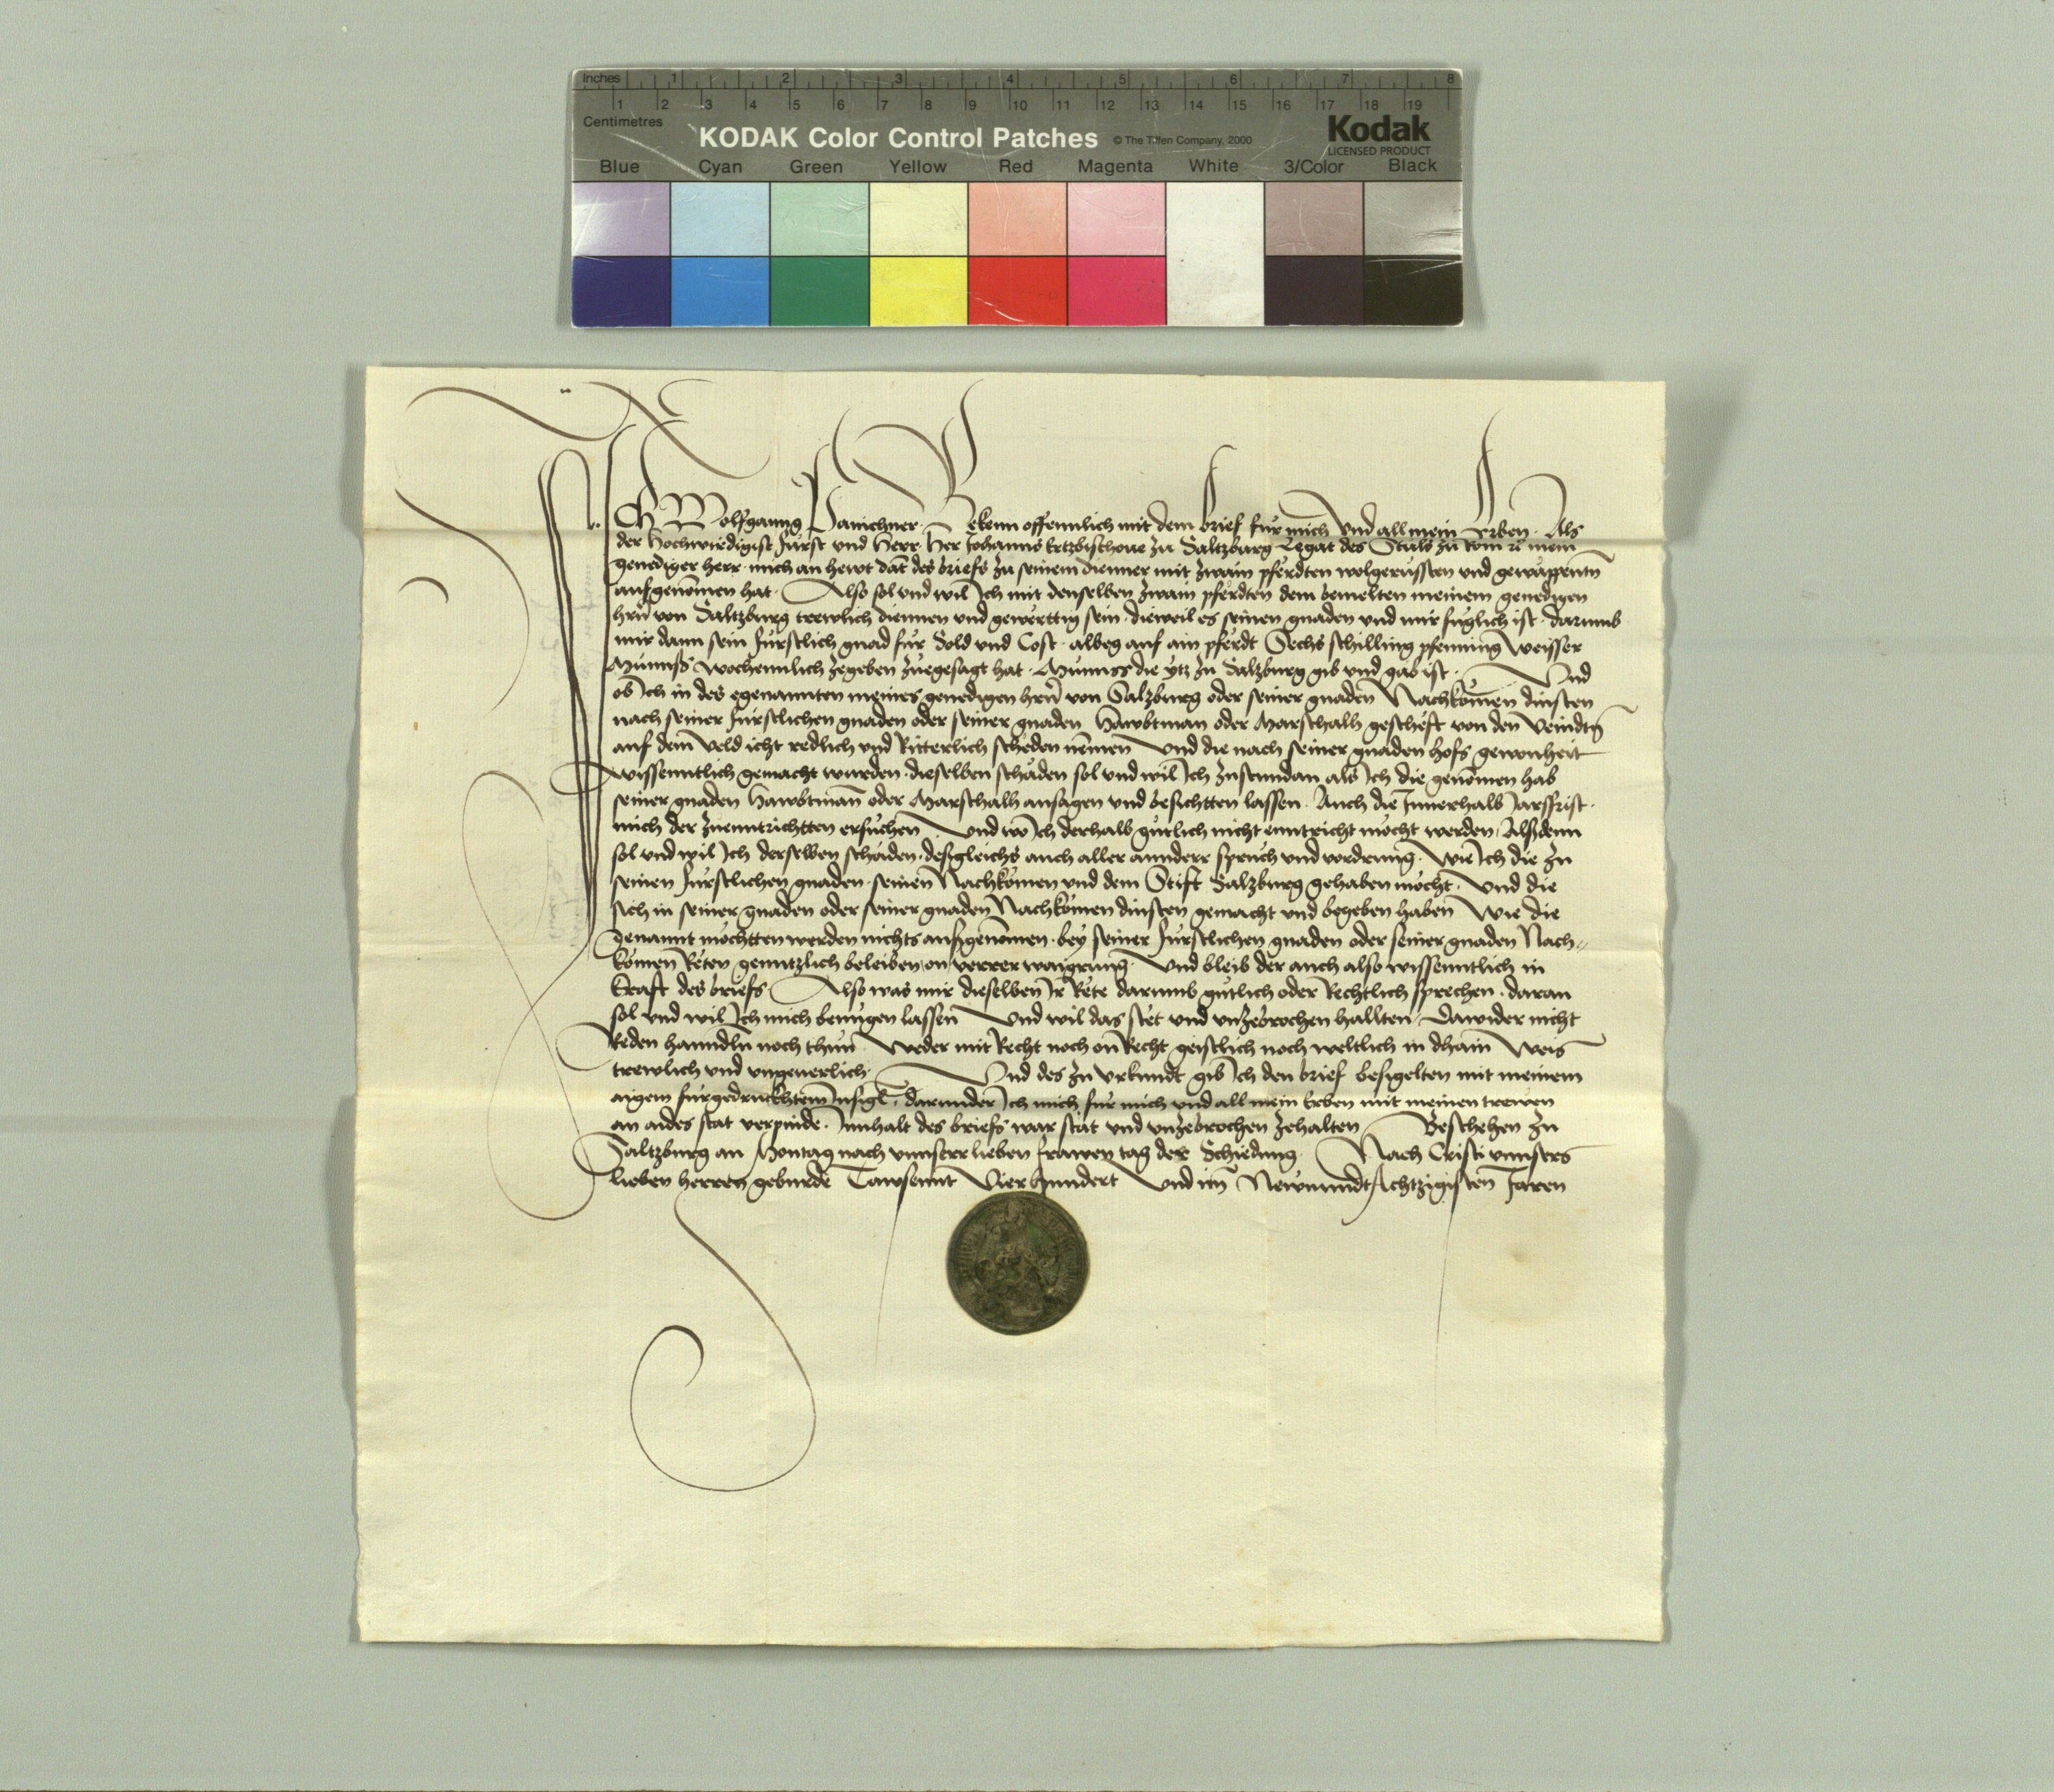 inches 1 2 3 4 5 6 7 8
1 2 3 4 5 6 7 8 9 10 11 12 13 14 15 16 17 18 19
Centimetres
KODAK Color Control Patches © The Tiffen Company, 2000 Kodak
LICENSED PRODUCT
Blue Cyan Green Yellow Red Magenta White 3/Color Black
Ich Wolfganng Panichner. Bekenn offennlich mit dem brief fur mich Vnd all mein Erben. Als
der hochwirdigist Furst vnd herr. her Johanns Ertzbischoue zu Saltzburg Legat des Stuls zu Rom rc mein
genediger herr. mich an hewt dat des briefs zu seinem dienner mit zwain pferdten wolgerussten vnd gewappentn
aufgenomen hat. Also sol vnd wil Ich mit denselben zwain pferdten dem bemelten meinem genedigen
hrn von Saltzburg trewlich diennen vnd gewerttig sein. dieweil es seinen gnaden vnd mir fuglich ist. darumb
mir dann sein furstlich gnad fur Sold vnd Cost. albeg auf ain pferdt Sechs schilling pfenning Weisser
Munnss wochennlich zegeben zuegesagt hat. Munnss die ytz zu Salzburg gib vnd gab ist. Vnd
ob Ich in des egenannten meines genedigen hrn von Salzburg oder seiner gnaden Nachkomen dinsten
nach seiner furstlichen gnaden oder seiner gnaden Hawbtman oder Marschalh gescheft von den Veindtn
auf dem Veld icht redlich vnd Ritterlich scheden nemen Vnd die nach seiner gnaden hofs gewonheit
wissenntlich gemacht wurden. dieselben schaden sol vnd wil Ich zustundan als Ich die genomen hab
seiner gnaden Hawbtman oder Marschalh ansagen vnd besichtten lassen. Auch die Innerhalb Jarsfrist.
mich der zuenntrichtten ersuchen Vnd wo Ich derhalb gutlich nicht enntricht mocht werden. Alssdenn
sol vnd wil Ich derselben schaden. dessgleichs auch aller annderr spruch vnd vordrung. Wie Ich die zu
seinen furstlichen gnaden. seinen Nachkomen vnd dem Stift Salzburg gehaben mocht. Vnd die
sich in seiner gnaden oder seiner gnaden Nachkomen dinsten gemacht vnd begeben haben Wie die
genannt mochtten werden nichts aussgenomen. bey seiner furstlichen gnaden oder seiner gnaden Nach-
komen Reten genntzlich beleiben on verrer waigrung. Vnd bleib der auch also wissenntlich in
kraft des briefs. Also was mir dieselben Ir Rete darumb gutlich oder Rechtlich sprechen. daran
sol vnd wil Ich mich benugen lassen Vnd wil das stet vnd vnzebrochen hallten Dawider nicht
Reden hanndln noch thun Weder mit Recht noch on Recht geistlich noch weltlich in dhain Weis
trewlich vnd vngeuerlich. Vnd des zu vrkundt gib Ich den brief besigelten mit meinem
aigem furgedruckhtem Insigl. darunder Ich mich fur mich vnd all mein Erben mit meinen trewen
an aides stat verpinde. Innhalt des briefs war stat vnd vnzebrochen zehalten Beschehen zu
Saltzburg an Montag nach vnnserr lieben frawen tag der Schiedung. Nach Cristi vnnsers
lieben herren geburde Tawsennt Vierhundert Vnd im Newnundtachtzigisten Jaren